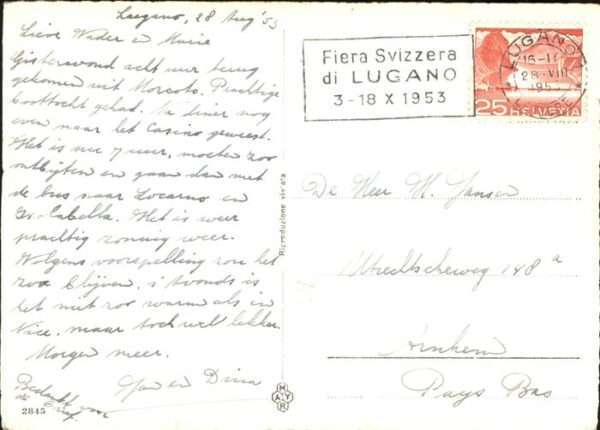 Lugano, 28 Aug '53
Lieve Vader en Marie
Gisteravond acht uur terug
gekomen uit Morcote. Prachtige
boottocht gehad. Na diner nog
even naar het Casino geweest.
Het is nu 7 uur, moeten zoo
ontbijten en gaan dan met
de bus naar Locarno en
Het is weer
prachtig zonnig weer.
Volgens voorspelling zou het
zoo blijven, 's avonds is
het niet zoo warm als in
Nice, maar toch wel lekker.
Morgen meer.
en Dina
Bedankt voor
de brief.
2845
Riproduzione vietata
MAYR
Fiera Svizzera
di LUGANO
3-18 X 1953
LUGANO 1
28.VIII
25 HELVETIA
De Heer W. Jansen
Utrechtscheweg 148 a
Arnhem
Pays Bas